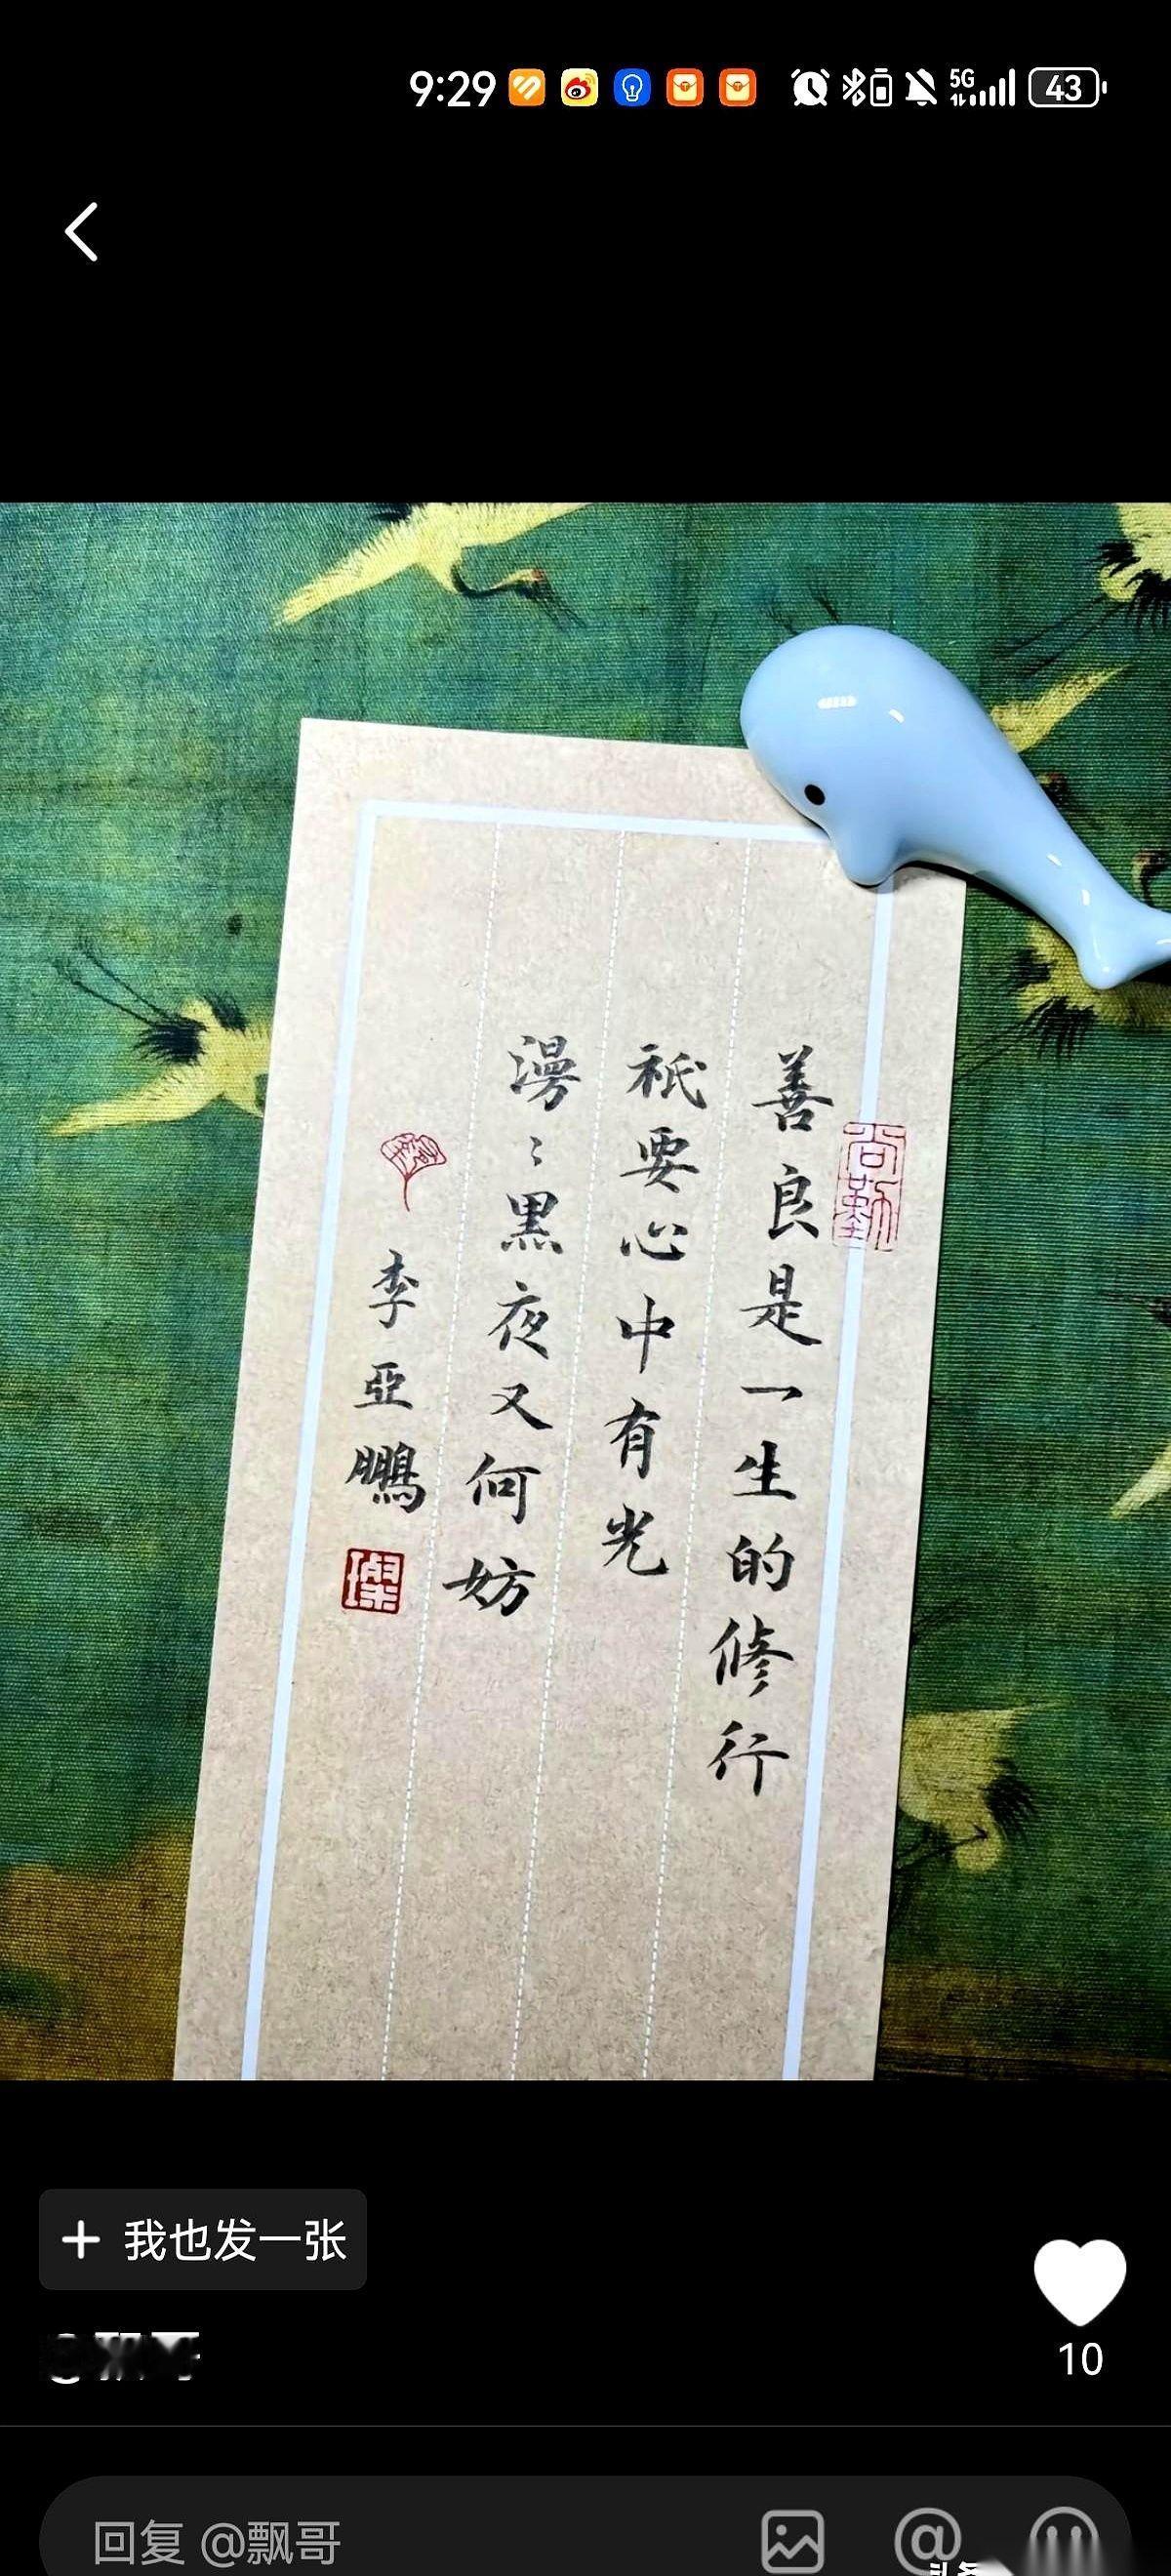 9:29
5G
43
善良是一生的修行
祇要心中有光
漫〻黑夜又何妨
李亞鵬
尚勤
我也发一张
10
回复 @飘哥